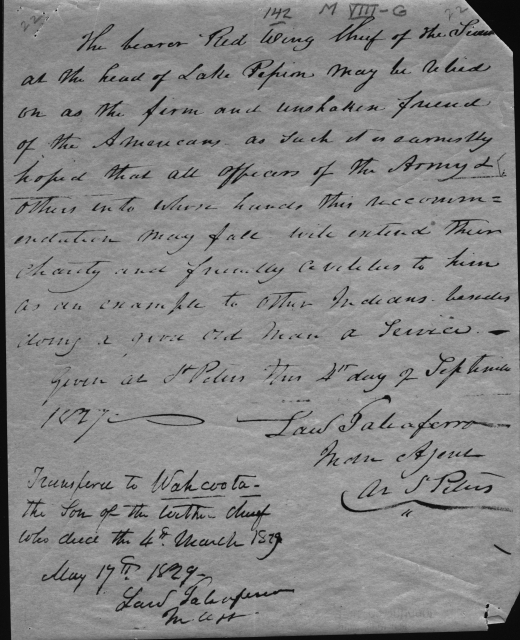 142 M VIII-G 22
The bearer Red Wing Chief of the Sioux
at the head of Lake Pepin may be relied
on as the firm and unshaken friend
of the Americans. as such it is earnestly
hoped that all officers of the Army &
others into whose hands this recomm=
endation may fall will extend their
charity and friendly civilities to him
as an example to other Indians. besides
doing a good old man a Service. —
Given at St Peters this 4th day of September
1827
Law Taliaferro
Indn Agent
at St Peters
Transferd to Wahcoota -
the Son of the within chief
who died the 4th March 1829
May 17th 1829-
Law Taliaferro